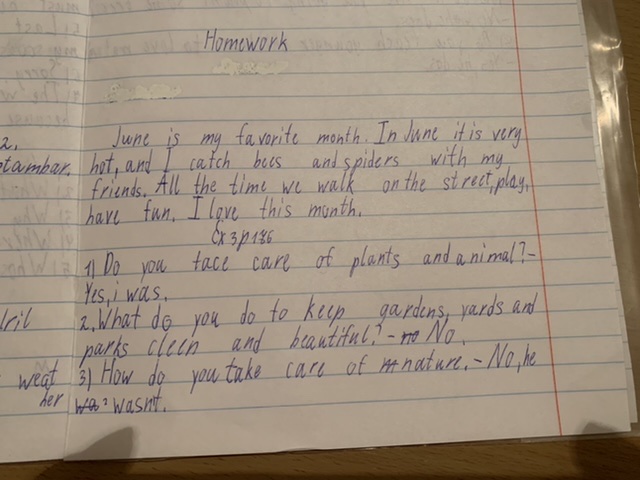 Homework
2.
June is my favorite month. In June it is very
tambar.
hot, and I catch bees and spiders with my
friends. All the time we walk on the street, play,
have fun. I love this month.
Ex 3 p 136
1) Do you tace care of plants and animal? -
Yes, i was.
2. What do you do to keep gardens, yards and
parks cleen and beautiful? - no No.
weat
3) How do you take care of nature. - No, he
her
wasn't.